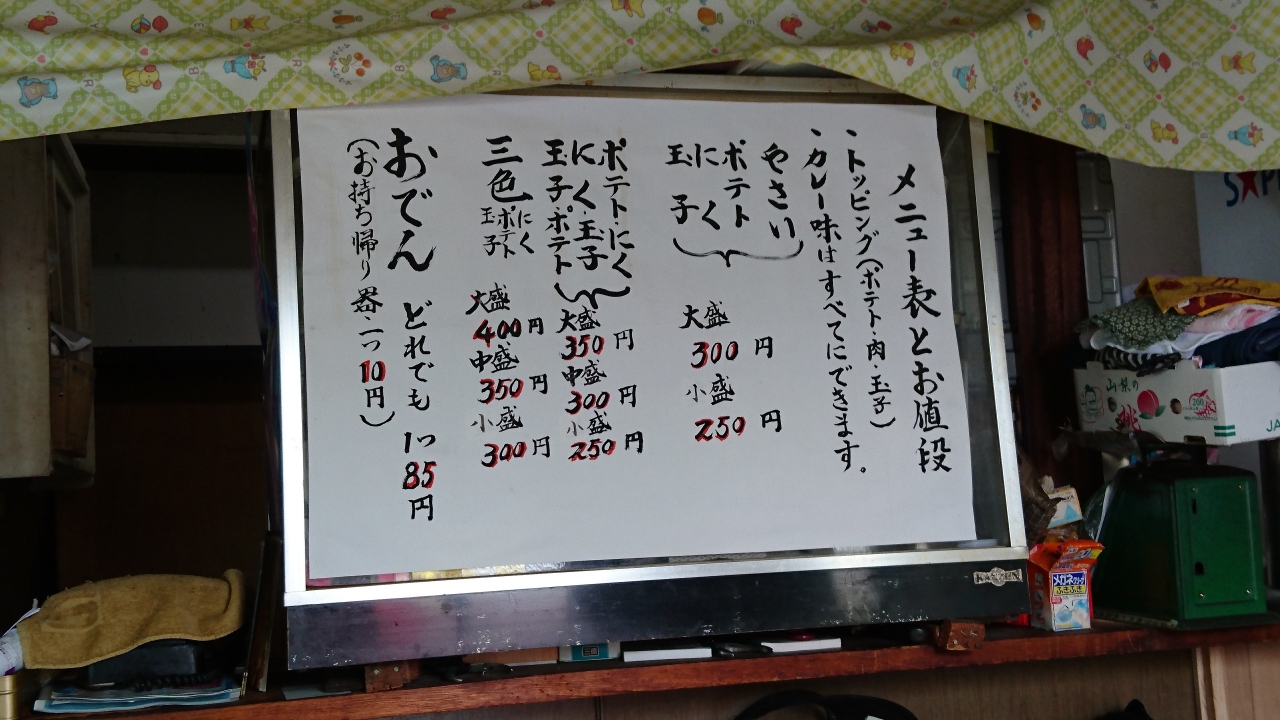 メニュー表とお値段
・トッピング(ポテト・肉・玉子)
・カレー味はすべてにできます。
やさい
ポテト
にく
玉子
大盛
300円
小盛
250円
ポテト・にく
にく・玉子
玉子・ポテト
大盛
350円
中盛
300円
小盛
250円
三色
にく
ポテト
玉子
大盛
400円
中盛
350円
小盛
300円
おでん どれでも 1つ85円
(お持ち帰り器・一つ10円)
山梨の
桃
200
JA
メガネクリーナ
ふきふき